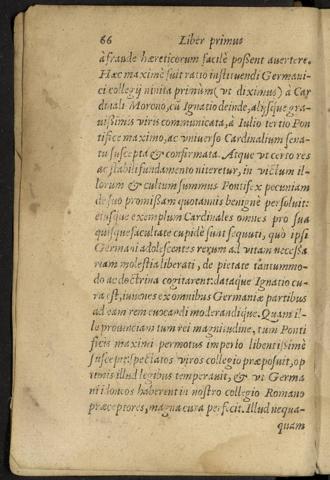 66 Liber primus
à fraude hæreticorum facilè possent avertere.
Hæc maximè fuit ratio instituendi Germani-
ci collegij ninita primùm (vt diximus) à Car
dinali Morono, cū Ignatio deinde, alijsque gra-
uissimis viris communicata, à Iulio tertio Pon
tifice maximo, ac vniuerso Cardinalium sena-
tu suscepta & confirmata. Atque vt certo res
ac stabili fundamento niteretur, in victum il-
lorum & cultum summus Pontifex pecuniam
de suo promissam quotannis benignè persoluit:
eiusque exemplum Cardinales omnes pro sua
quisque facultate cupidè sunt sequuti, quò ipsi
Germani adolescentes rerum ad vitam necessa
riam molestia liberati, de pietate tantummo-
do ac doctrina cogitarent: dataque Ignatio cu-
ra est, iuuenes ex omnibus Germaniæ partibus
ad eam rem euocandi moderandique. Quam il-
le prouinciam tum rei magnitudine, tum Ponti
ficis maximi permotus imperio libentissimè
suscepit: spectatos viros collegio præposuit, op
timis illud legibus temperauit, & vt Germa
ni idoneos haberent in nostro collegio Romano
præceptores, magna cura perfecit. Illud nequa-
quam